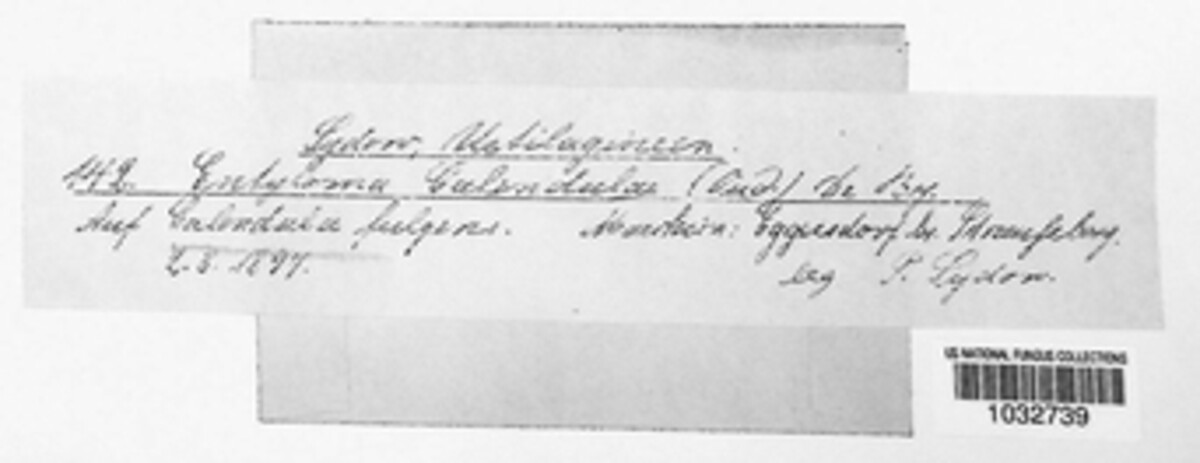 Sydow, Ustilagineen.
142. Entyloma Calendulae (Oud.) de Bry.
Auf Calendula fulgens. Marchica: Eggersdorf br.
2. 8. 1897.
leg P. Sydow.
US NATIONAL FUNGUS COLLECTIONS
1032739